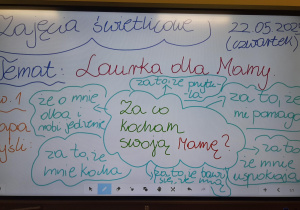 Zajęcia świetlicowe
22.05.202
(czwartek)
Temat: Laurka dla Mamy.
za to, że przytu-
la
że o mnie
dba i
robi jedzenie
Za co
kocham
swoją Mamę?
za to, że
mi pomaga
za to, że
mnie kocha
za to, że bawi
się ze mną
za to,
że mnie
uspokaja